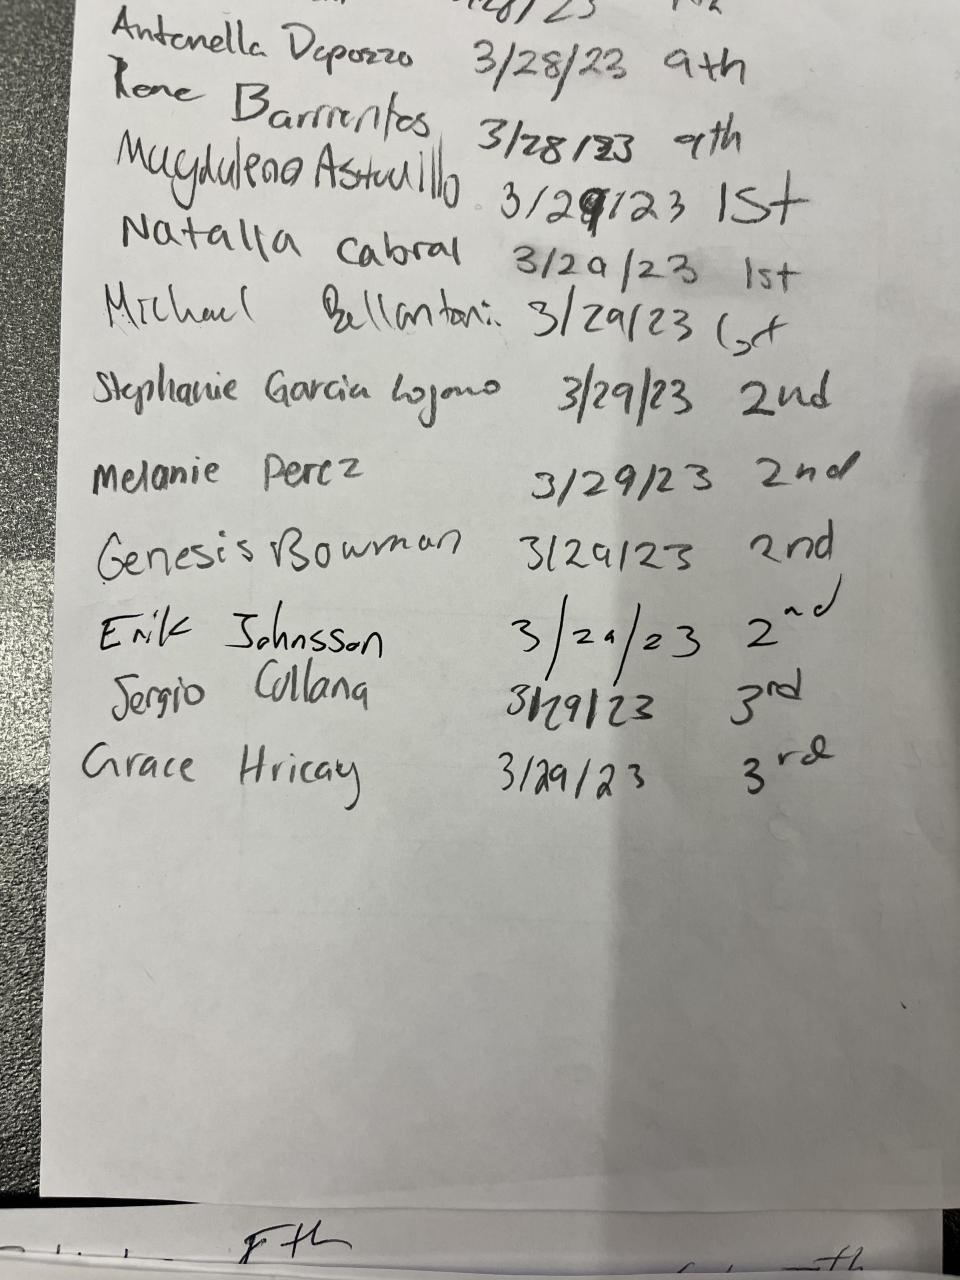 /28/23
Antonella Dapozzo 3/28/23 9th
Rene Barrientos 3/28/23 9th
Magdalena Astudillo 3/29/23 1st
Natalia Cabral 3/29/23 1st
Michael Bellantoni 3/29/23 1st
Stephanie Garcia Lozano 3/29/23 2nd
Melanie Perez 3/29/23 2nd
Genesis Bowman 3/29/23 2nd
Erik Johnsson 3/29/23 2nd
Sergio Collana 3/29/23 3rd
Grace Hricay 3/29/23 3rd